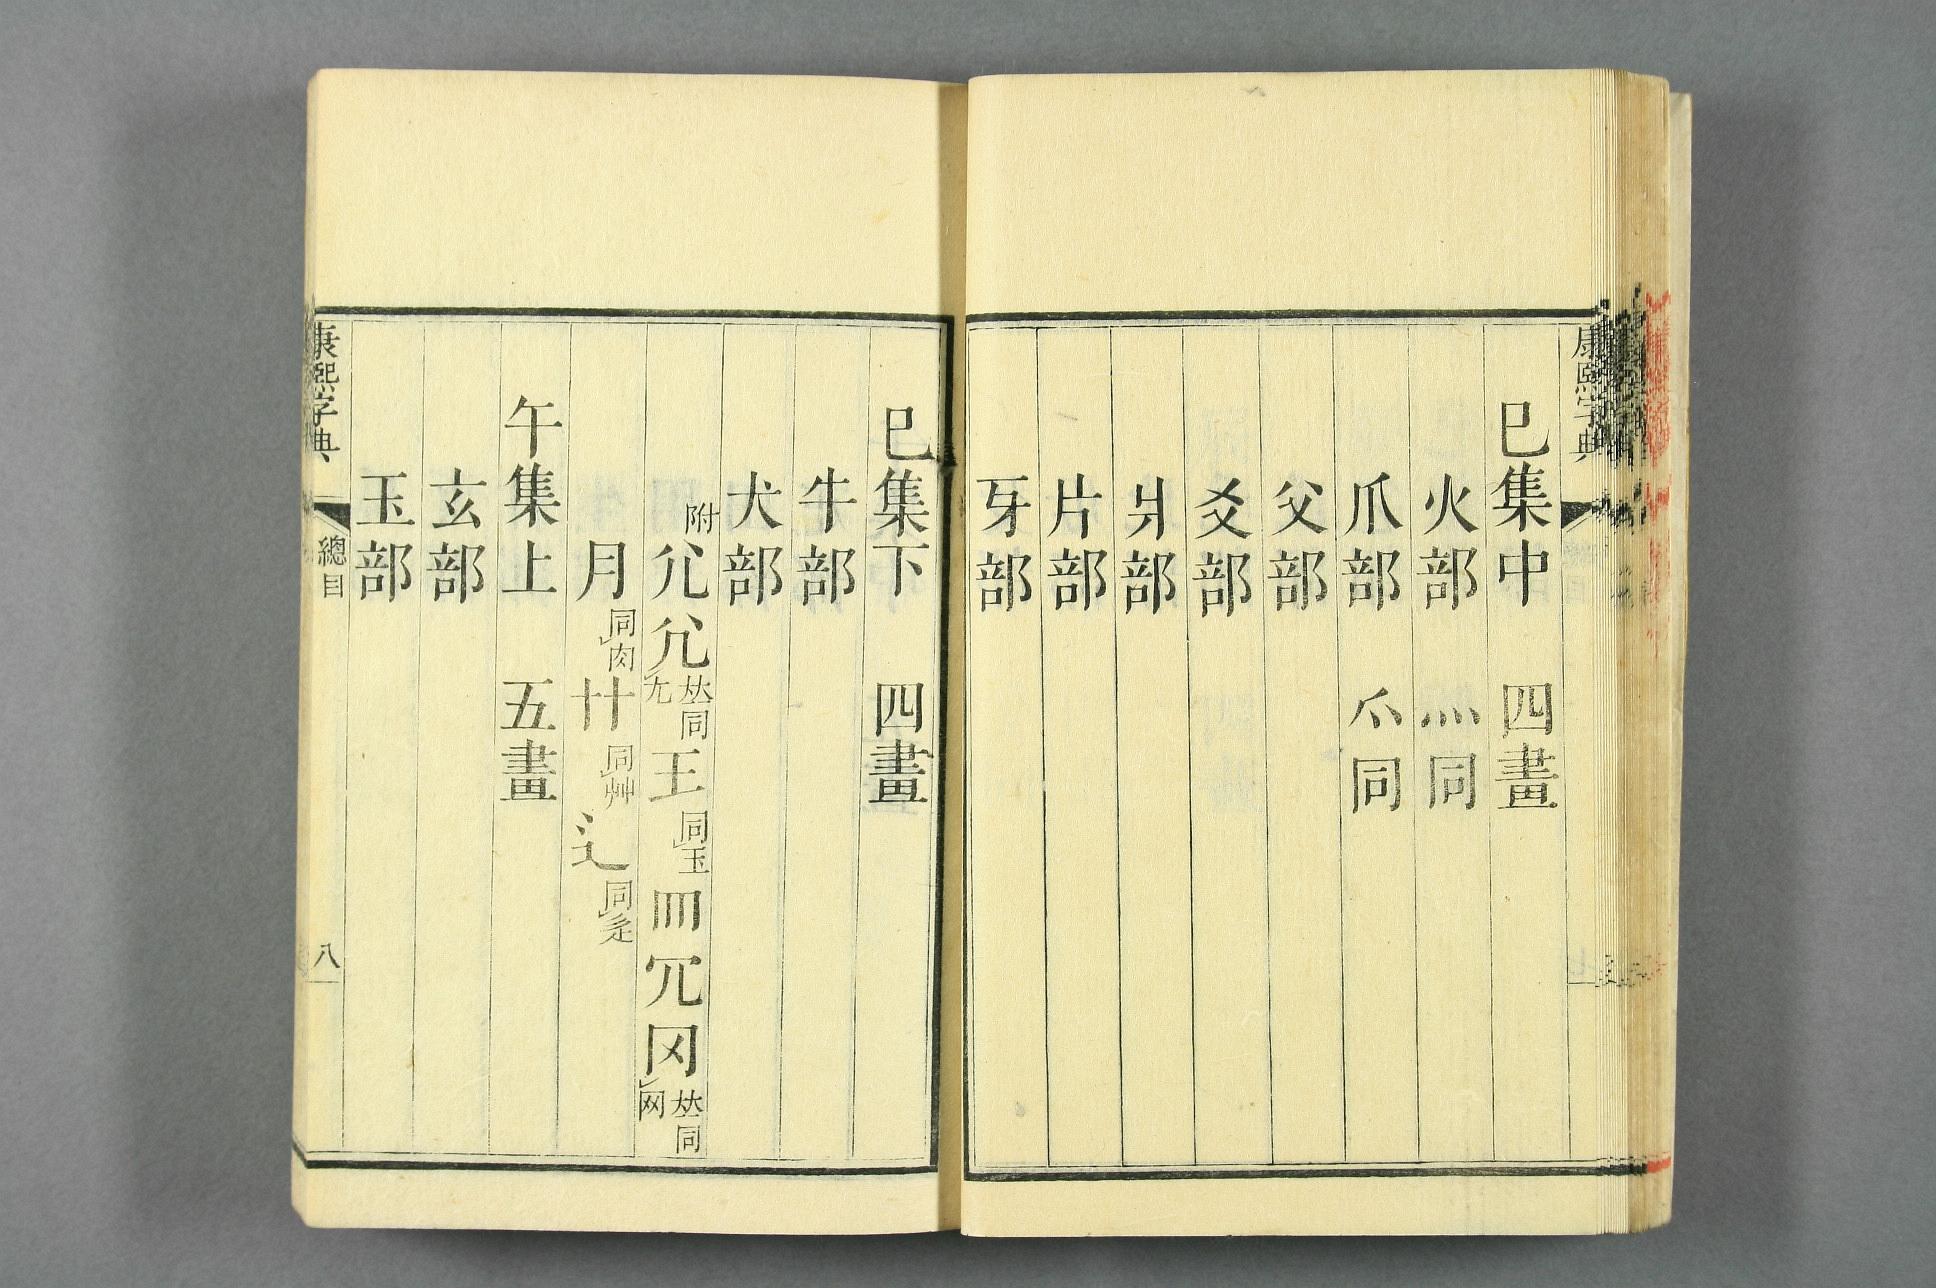 康熙字典
巳集中 四畫
火部 灬同
爪部 爫同
父部
爻部
爿部
片部
牙部
巳集下 四畫
牛部
犬部
附 尣兀𡯂同尢 王同玉 罒冗冈𠀤同网
月同肉 艹同艸 辶同辵
午集上 五畫
玄部
玉部
康熙字典 總目 八